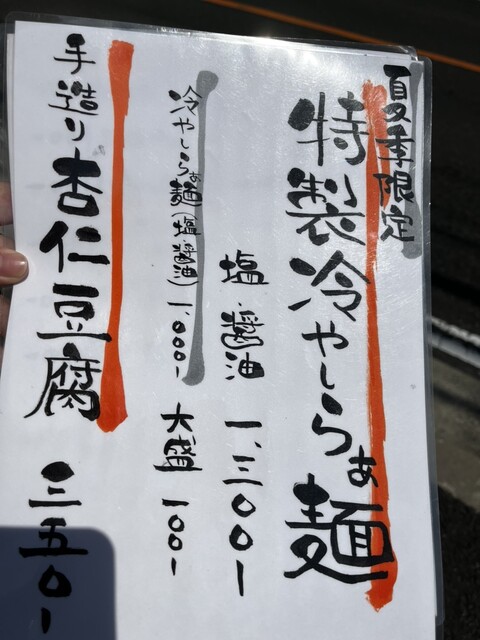 夏季限定
特製冷やしらぁ麺
塩・醤油 一、三〇〇ー
冷やしらぁ麺(塩・醤油)一、〇〇〇ー
大盛 一〇〇ー
手造り杏仁豆腐 三五〇ー